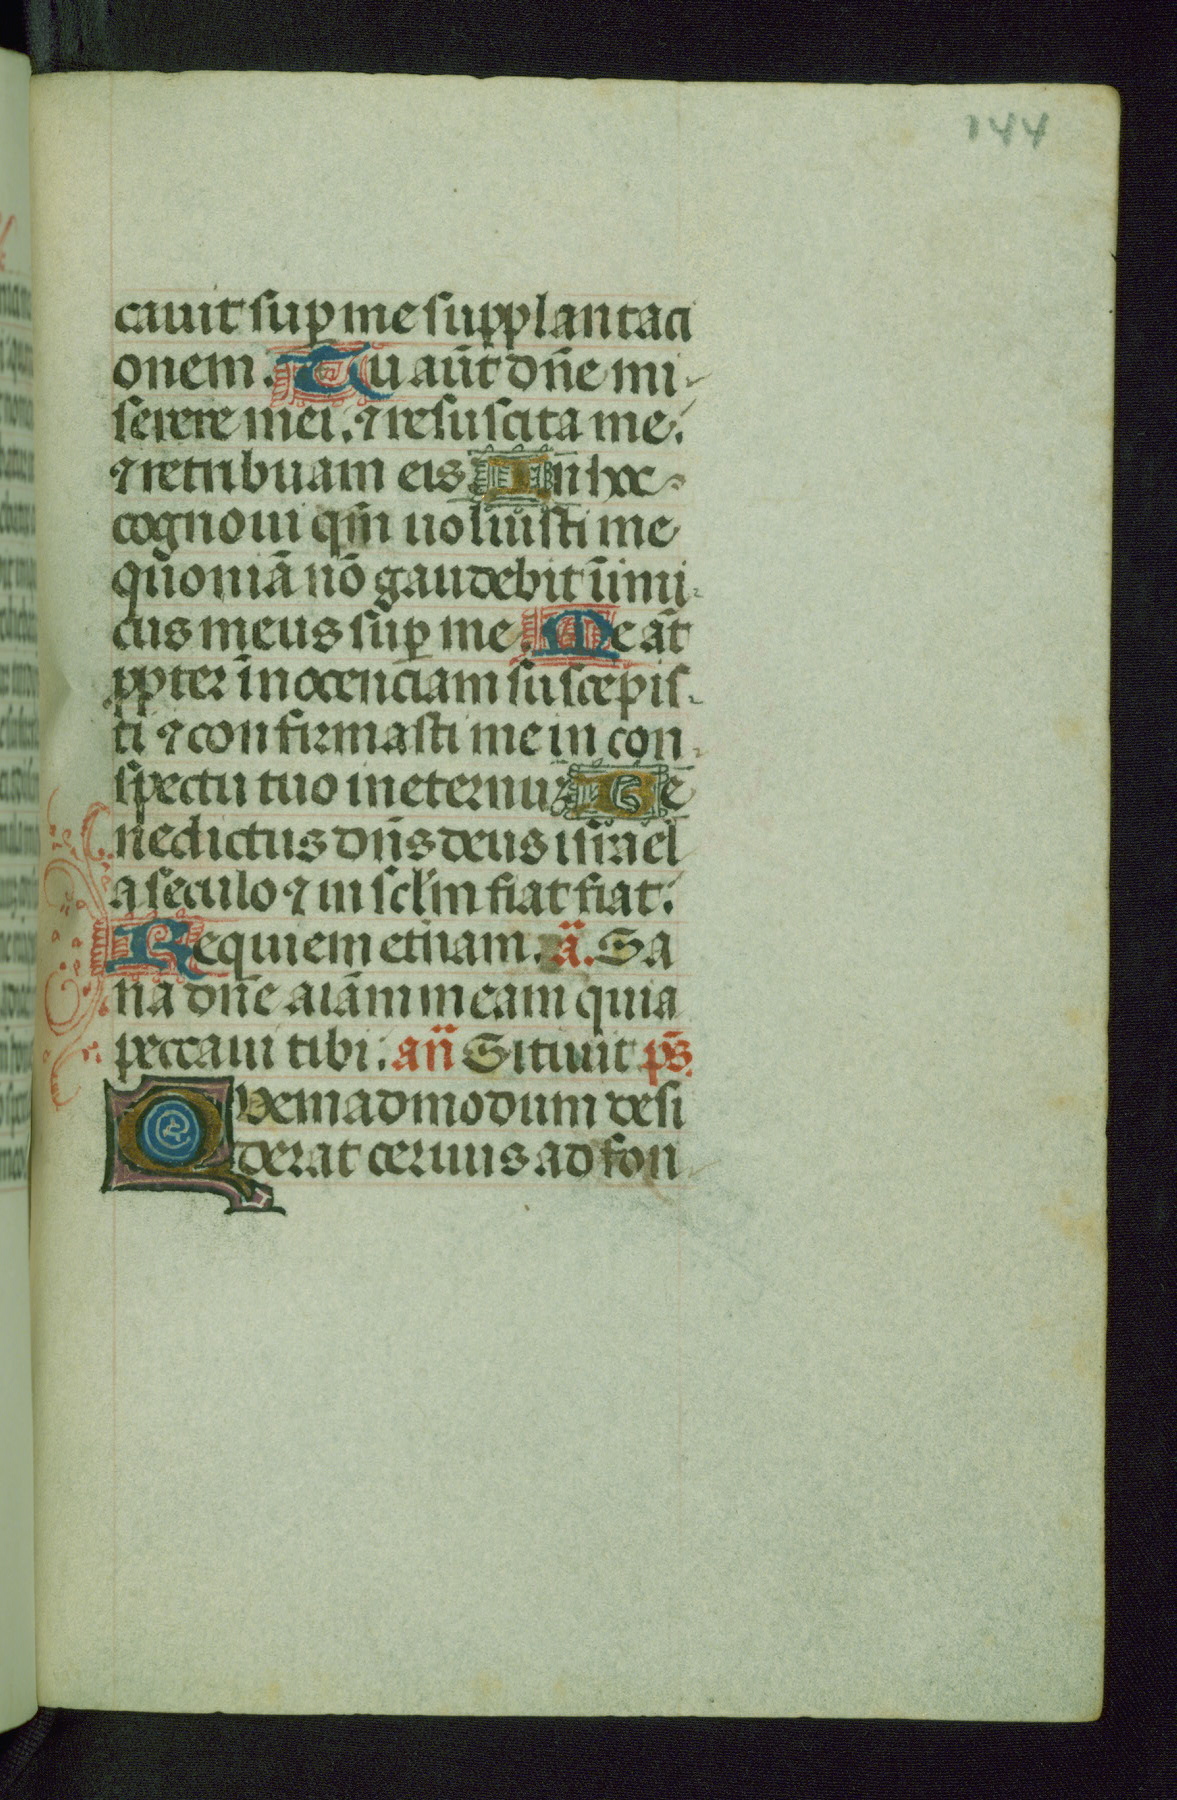 144
cauit sup me supplantaci
onem. Tu aūt dn̄e mi
serere mei. ⁊ resuscita me.
⁊ retribuam eis In hoc
cognoui qm̄ uoluisti me
quoniā nō gaudebit inimi
cus meus sup me. Me āt
ppter inocenciam suscepis
ti ⁊ confirmasti me in con
spectu tuo in eternuz Be
nedictus dn̄s deus isrāel
a seculo ⁊ in sclm̄ fiat fiat.
Requiem etnam. ā. Sa
na dn̄e aīam meam quia
peccaui tibi. an̄ Sitiuit ps̄
Quemadmodum desi
derat ceruus ad fon